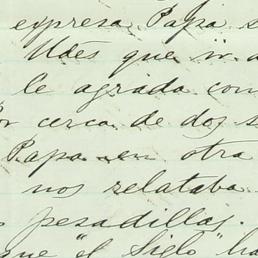 expresa Papa s
Udes que ir a
le agrada con
or cerca de dos s
Papa en otra
nos relataba
pesadillas.
que "el Siglo" ha